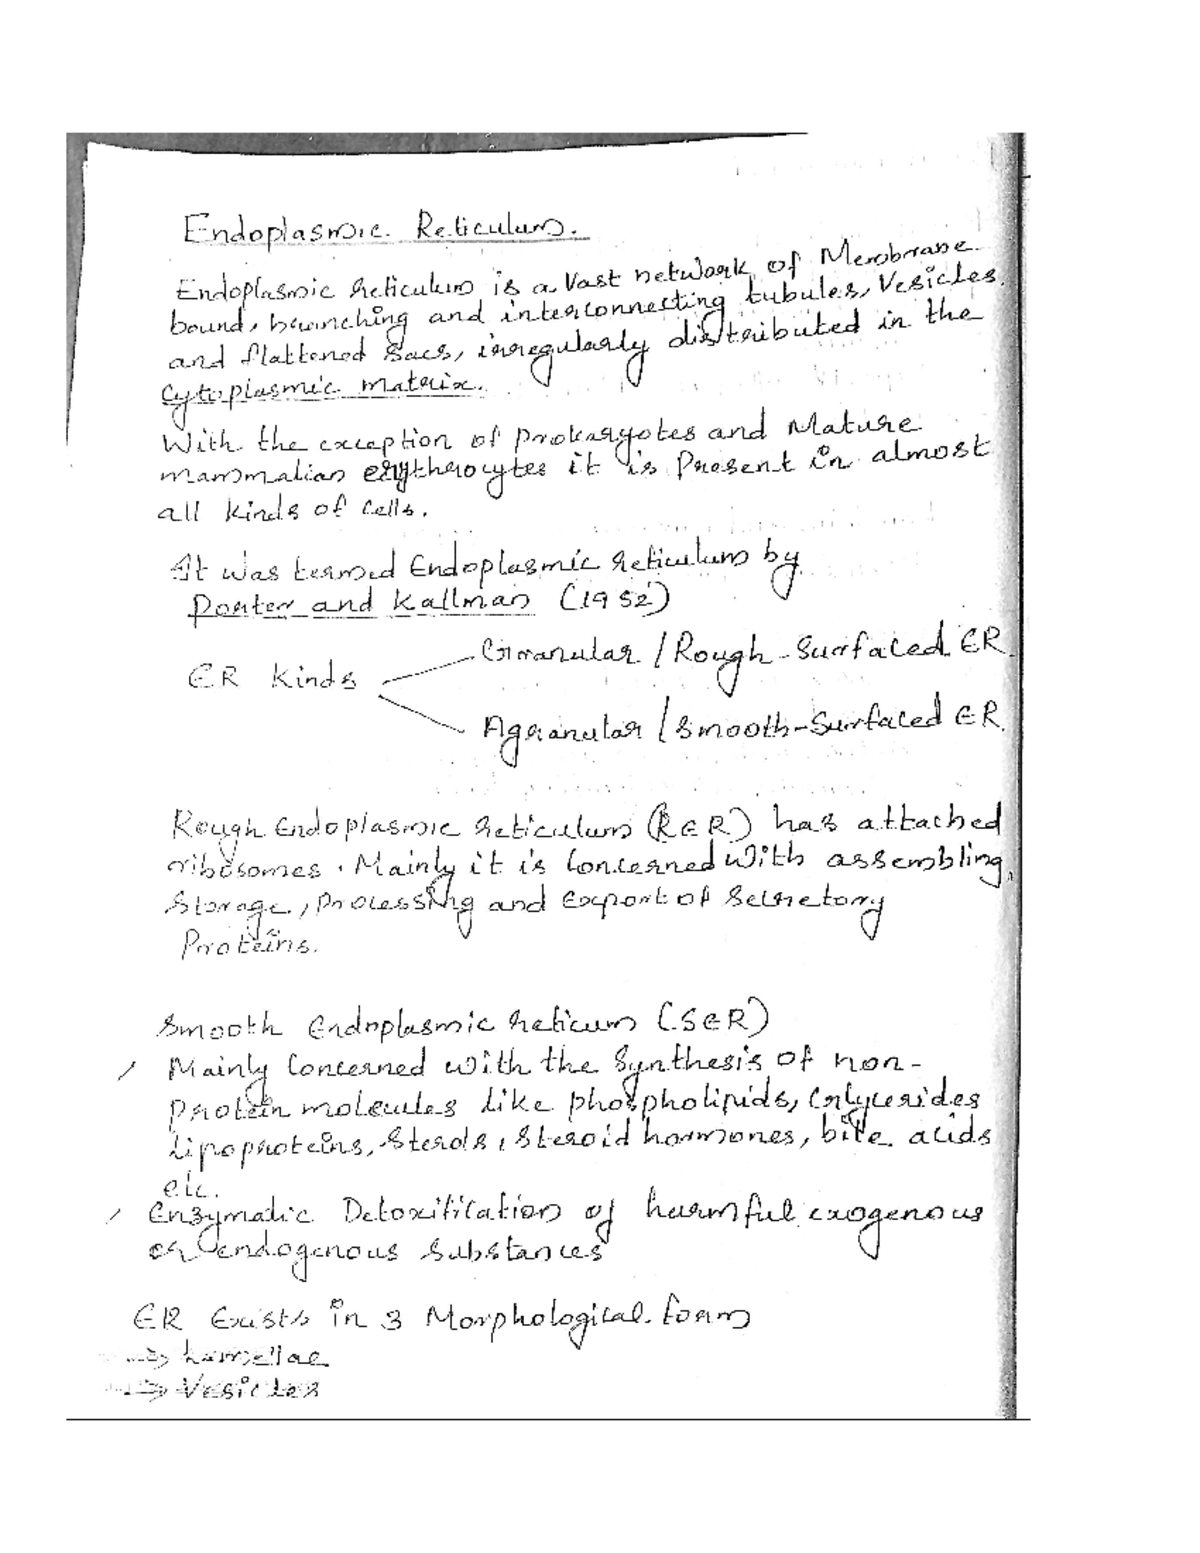 Endoplasmic Reticulum.
Endoplasmic reticulum is a vast network of Membrane
bound, branching and interconnecting tubules, Vesicles
and flattened sacs, irregularly distributed in the
cytoplasmic matrix.
With the exception of prokaryotes and Mature
mammalian erythrocytes it is Present in almost
all kinds of cells.
It was termed Endoplasmic reticulum by
Porter and Kallman (1952)
ER Kinds
Granular / Rough-Surfaced ER.
Agranular / Smooth-Surfaced ER.
Rough Endoplasmic reticulum (RER) has attached
ribosomes. Mainly it is concerned with assembling,
storage, processing and Export of Secretory
Proteins.
Smooth Endoplasmic reticum (SER)
/ Mainly Concerned with the Synthesis of non-
protein molecules like phospholipids, Glycerides
lipoproteins, Sterols, Steroid hormones, bile acids
etc.
/ Enzymatic Detoxification of harmful exogenous
or endogenous substances
ER Exists in 3 Morphological form
⇒ lamellae
⇒ Vesicles